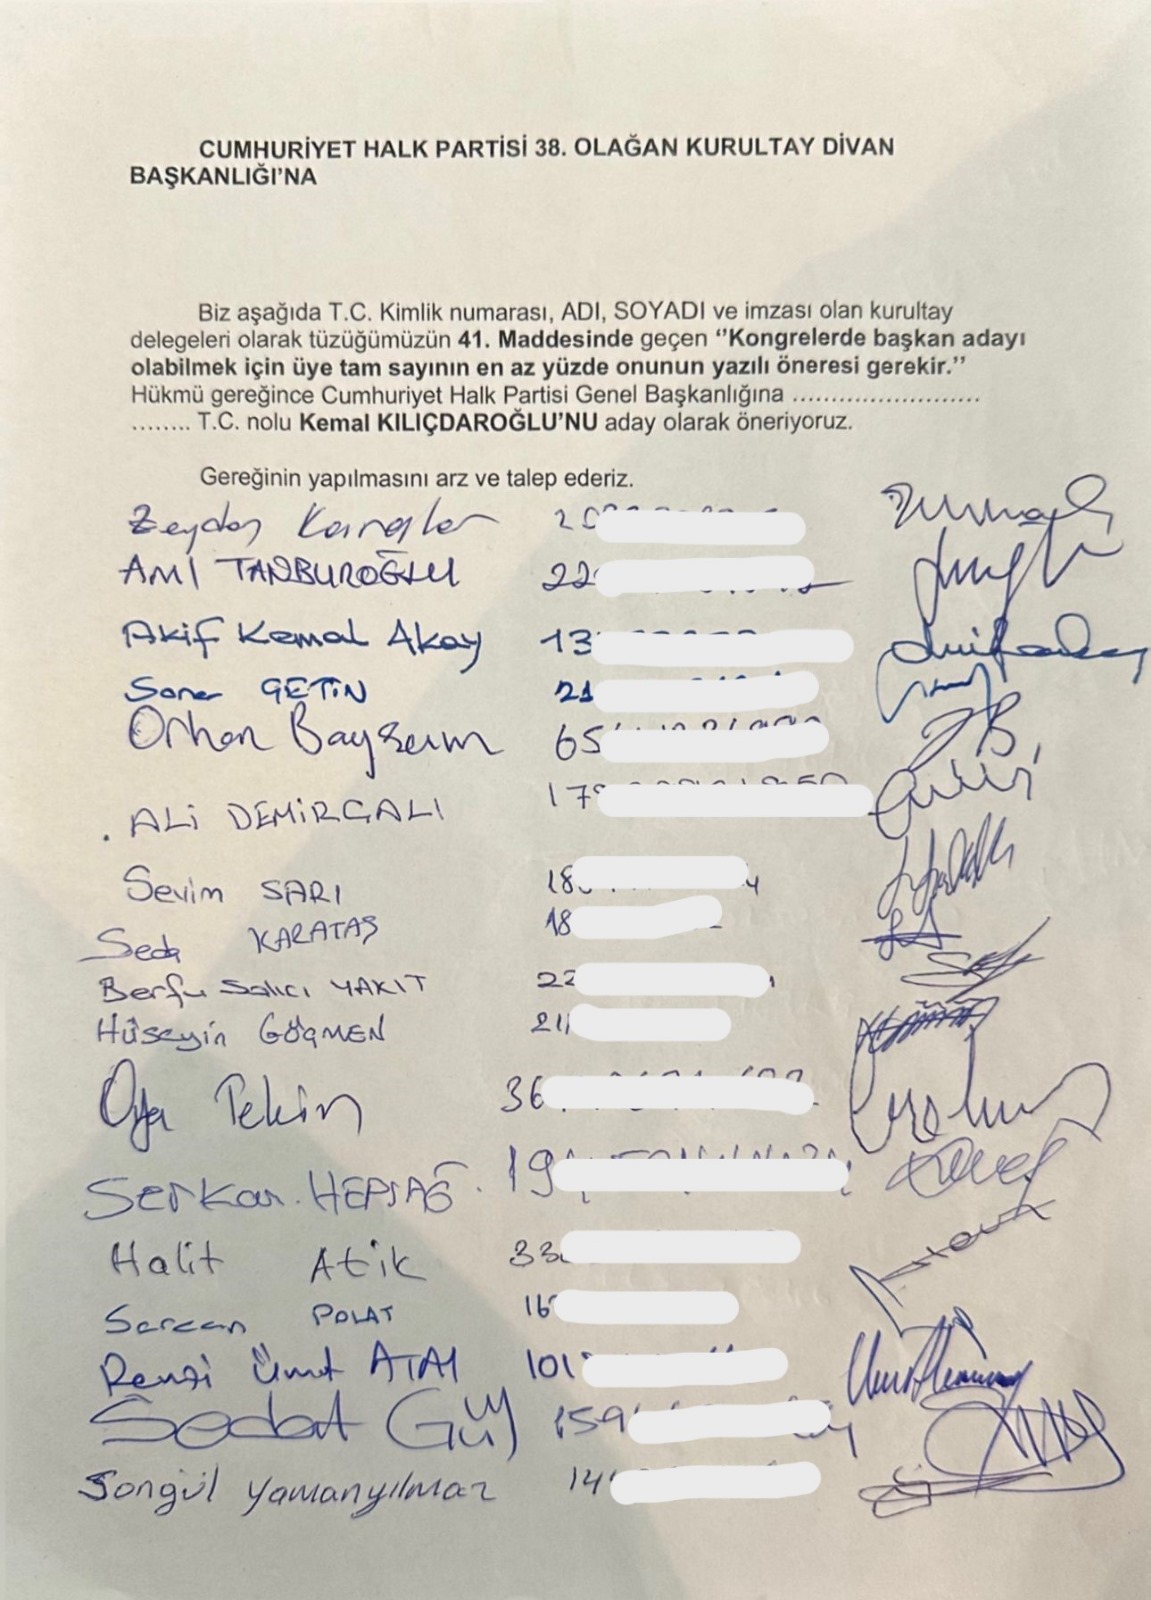 CUMHURİYET HALK PARTİSİ 38. OLAĞAN KURULTAY DİVAN
BAŞKANLIĞI'NA
Biz aşağıda T.C. Kimlik numarası, ADI, SOYADI ve imzası olan kurultay
delegeleri olarak tüzüğümüzün 41. Maddesinde geçen ‘’Kongrelerde başkan adayı
olabilmek için üye tam sayının en az yüzde onunun yazılı öneresi gerekir.’’
Hükmü gereğince Cumhuriyet Halk Partisi Genel Başkanlığına ........................
........ T.C. nolu Kemal KILIÇDAROĞLU'NU aday olarak öneriyoruz.
Gereğinin yapılmasını arz ve talep ederiz.
Zeydan Karalar 20
Anıl TANBUROĞLU 22
Akif Kemal Akay 13
Soner ÇETİN 21
Orhan 65
ALİ DEMİRÇALI 17
Sevim SARI 18
Seda KARATAŞ 18
Berfu Salıcı YAKIT 22
Hüseyin GÖÇMEN 21
Oya Tekin 36
Serkan HEPSAĞ 19
Halit Atik 33
Sercan POLAT 16
Remzi Ümit ATAY 101
Sedat Gül 159
Songül Yamanyılmaz 14